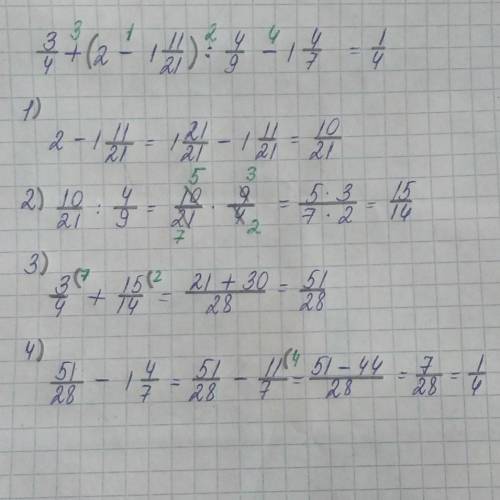 3/4 +³ (2 −¹ 1 11/21) :² 4/9 −⁴ 1 4/7 = 1/4
1)
2 − 1 11/21 = 1 21/21 − 1 11/21 = 10/21
2) 10/21 : 4/9 = 10⁵/21₇ · 9³/4₂ = 5·3/7·2 = 15/14
3)
3/4 (7 + 15/14 (2 = 21 + 30/28 = 51/28
4)
51/28 − 1 4/7 = 51/28 − 11/7 (4 = 51 − 44/28 = 7/28 = 1/4